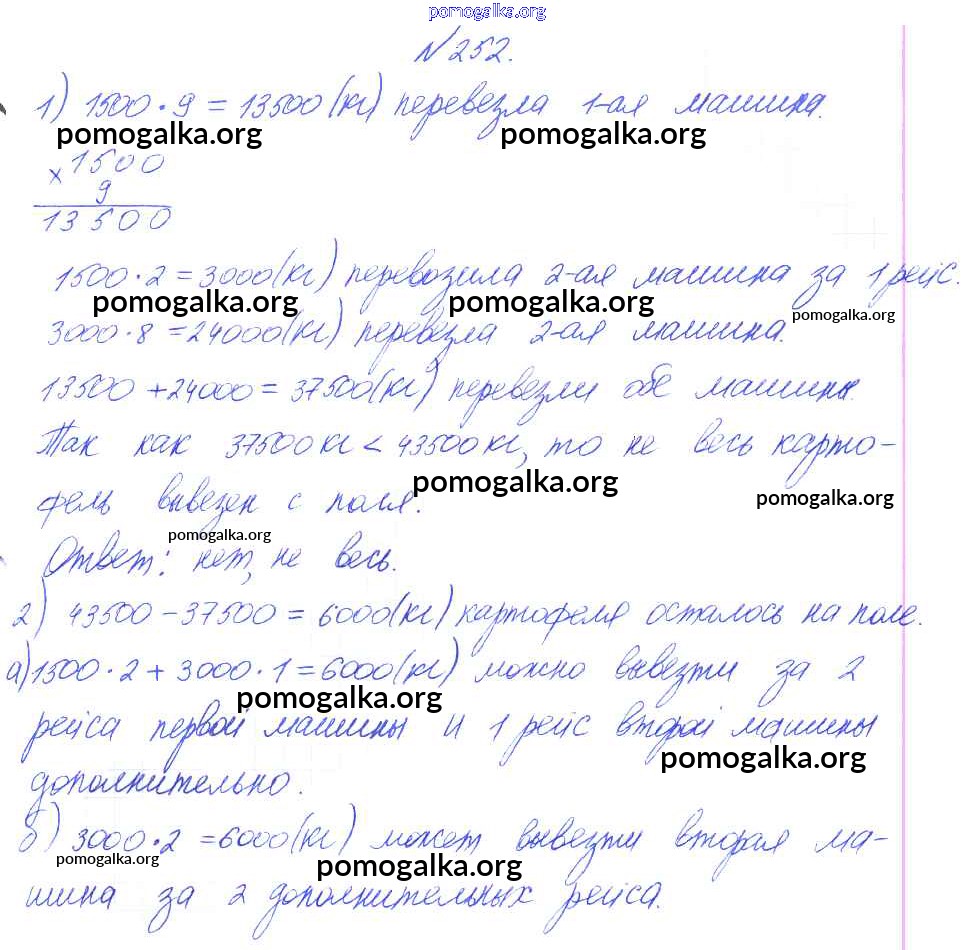 pomogalka.org
№252.
1) 1500 · 9 = 13500 (кг) перевезла 1-ая машина.
pomogalka.org pomogalka.org
× 1500
9
13500
1500 · 2 = 3000 (кг) перевозила 2-ая машина за 1 рейс.
pomogalka.org pomogalka.org pomogalka.org
3000 · 8 = 24000 (кг) перевезла 2-ая машина.
13500 + 24000 = 37500 (кг) перевезли обе машины.
Так как 37500 кг < 43500 кг, то не весь карто-
pomogalka.org pomogalka.org
фель вывезен с поля.
pomogalka.org
Ответ: нет, не весь.
2) 43500 – 37500 = 6000 (кг) картофеля осталось на поле.
а) 1500 · 2 + 3000 · 1 = 6000 (кг) можно вывезти за 2
pomogalka.org
рейса первой машины и 1 рейс второй машины
pomogalka.org
дополнительно.
б) 3000 · 2 = 6000 (кг) может вывезти вторая ма-
pomogalka.org pomogalka.org
шина за 2 дополнительных рейса.